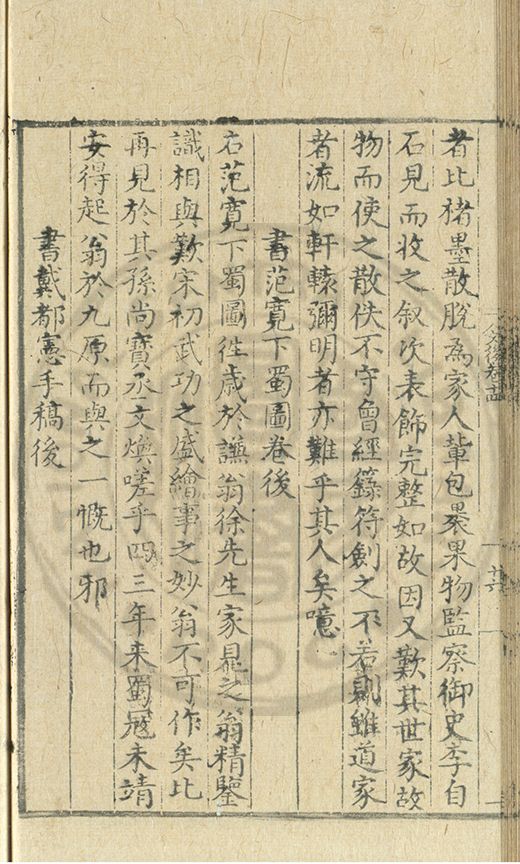 者比猪墨散脫為家人輩包褁果物監察御史李自
石見而收之叙次表飾完整如故因又歎其世家故
物而使之散佚不守會經籙符劍之不若則雖道家
者流如軒轅彌明者亦難乎其人矣噫
書范寛下蜀圖卷後
右范寛下蜀圖徃歲於譙翁徐先生家㫤之翁精鑒
識相與歎宋初武功之盛繪事之妙翁不可作矣比
再見於其孫尚寶丞文煥嗟乎四三年来蜀冦未靖
安得起翁於九原而與之一慨也邪
書戴都憲手稿後